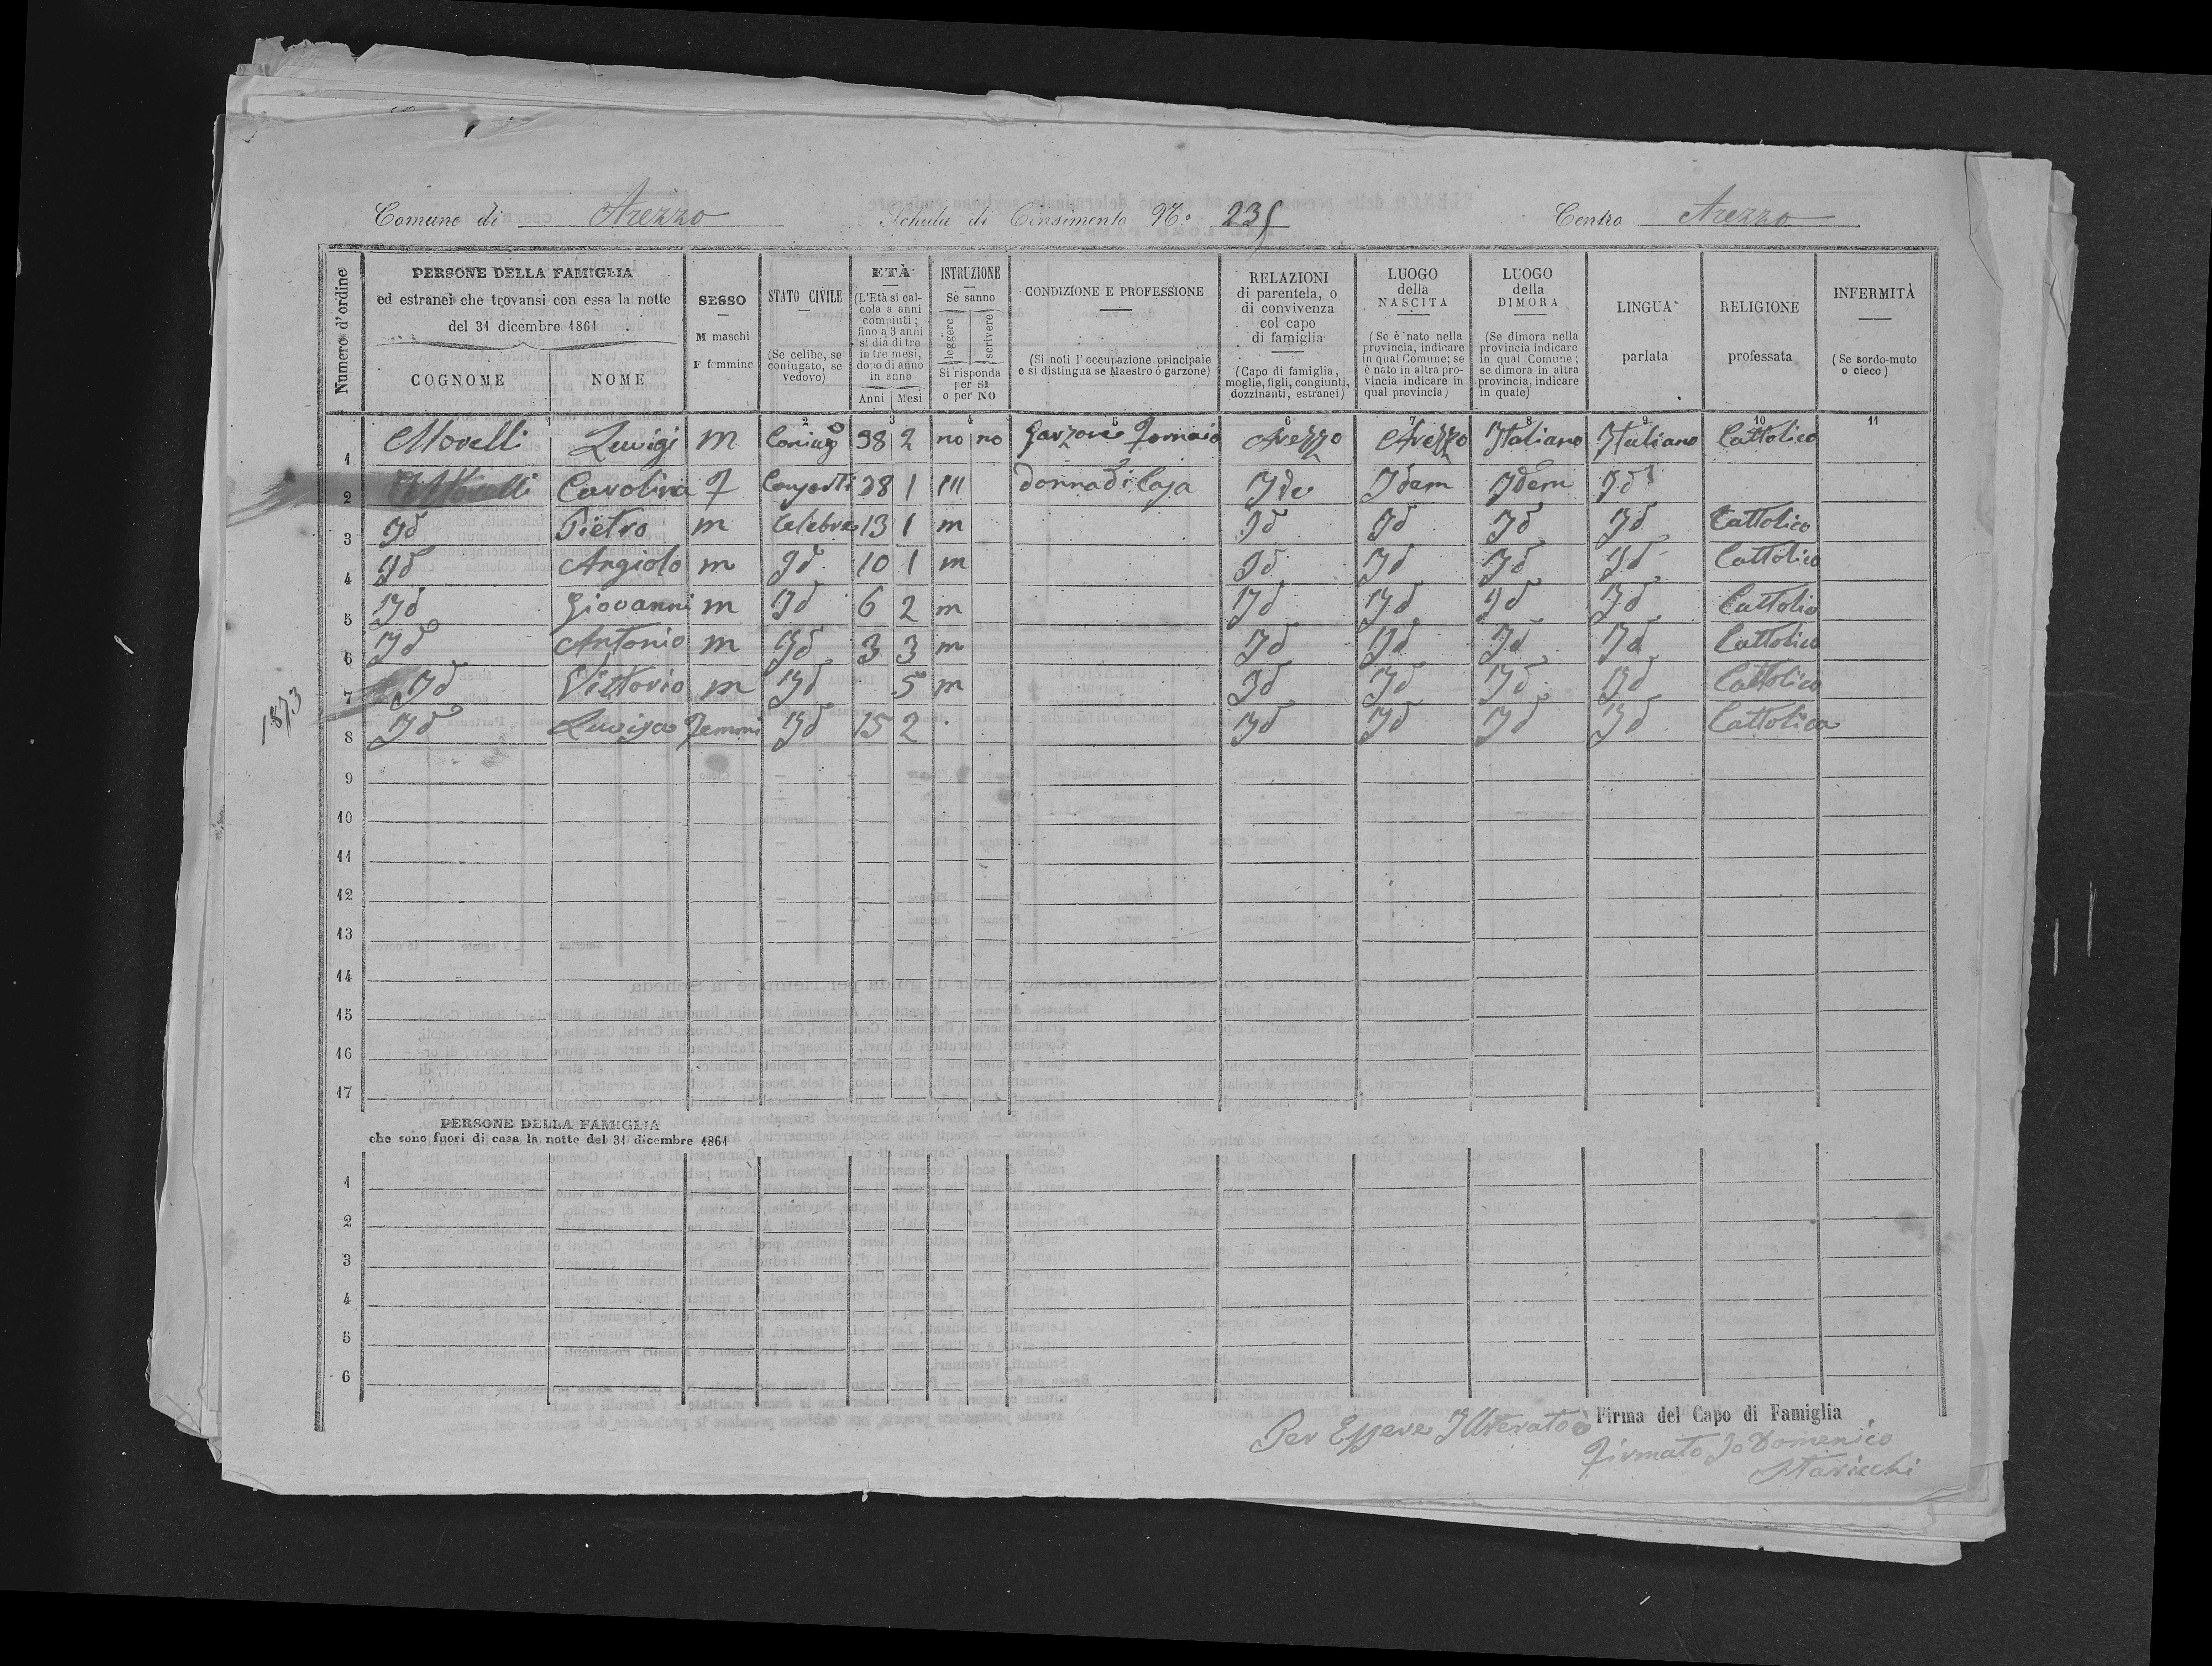 Comune di Arezzo Scheda di Censimento N.o 235 Centro Arezzo
Numero d'ordine
PERSONE DELLA FAMIGLIA
ed estranei che trovansi con essa la notte
del 31 dicembre 1861
COGNOME NOME
SESSO
M maschi
F femmine
STATO CIVILE
(Se celibe, se
coniugato, se
vedovo)
ETÀ
(L'Età si cal-
cola a anni
compiuti;
fino a 3 anni
si dia di tre
in tre mesi,
dopo di anno
in anno
Anni Mesi
ISTRUZIONE
Se sanno
leggere scrivere
Si risponda
per SI
o per NO
CONDIZIONE E PROFESSIONE
(Si noti l'occupazione principale
e si distingua se Maestro o garzone)
RELAZIONI
di parentela, o
di convivenza
col capo
di famiglia
(Capo di famiglia,
moglie, figli, congiunti,
dozzinanti, estranei)
LUOGO
della
NASCITA
(Se è nato nella
provincia, indicare
in qual Comune; se
è nato in altra pro-
vincia indicare in
qual provincia)
LUOGO
della
DIMORA
(Se dimora nella
provincia indicare
in qual Comune;
se dimora in altra
provincia, indicare
in quale)
LINGUA
parlata
RELIGIONE
professata
INFERMITÀ
(Se sordo-muto
o cieco)
2 3 4 5 6 7 8 9 10 11
1 Morelli Luvigi m Coniugo 38 2 no no Garzone Fornaio Arezzo Arezzo Italiano Italiano Cattolico
2 Carolina F 38 1 Donna di Casa Ide Idem Idem Id
3 Id Pietro m Celebre 13 1 m Id Id Id Id Cattolico
4 Id Angiolo m Id 10 1 m Id Id Id Id Cattolico
5 Id Giovanni m Id 6 2 m Id Id Id Id Cattolico
6 Id Antonio m Id 3 3 m Id Id Id Id Cattolico
7 Id Vittorio m Id 5 m Id Id Id Id Cattolico
8 Id Luvisa Femmi Id 15 2 Id Id Id Id Cattolica
1873
9
10
11
12
13
14
15
16
17
PERSONE DELLA FAMIGLIA
che sono fuori di casa la notte del 31 dicembre 1861
1
2
3
4
5
6
Firma del Capo di Famiglia
Per Essere Illiterato
Firmato Io Domenico